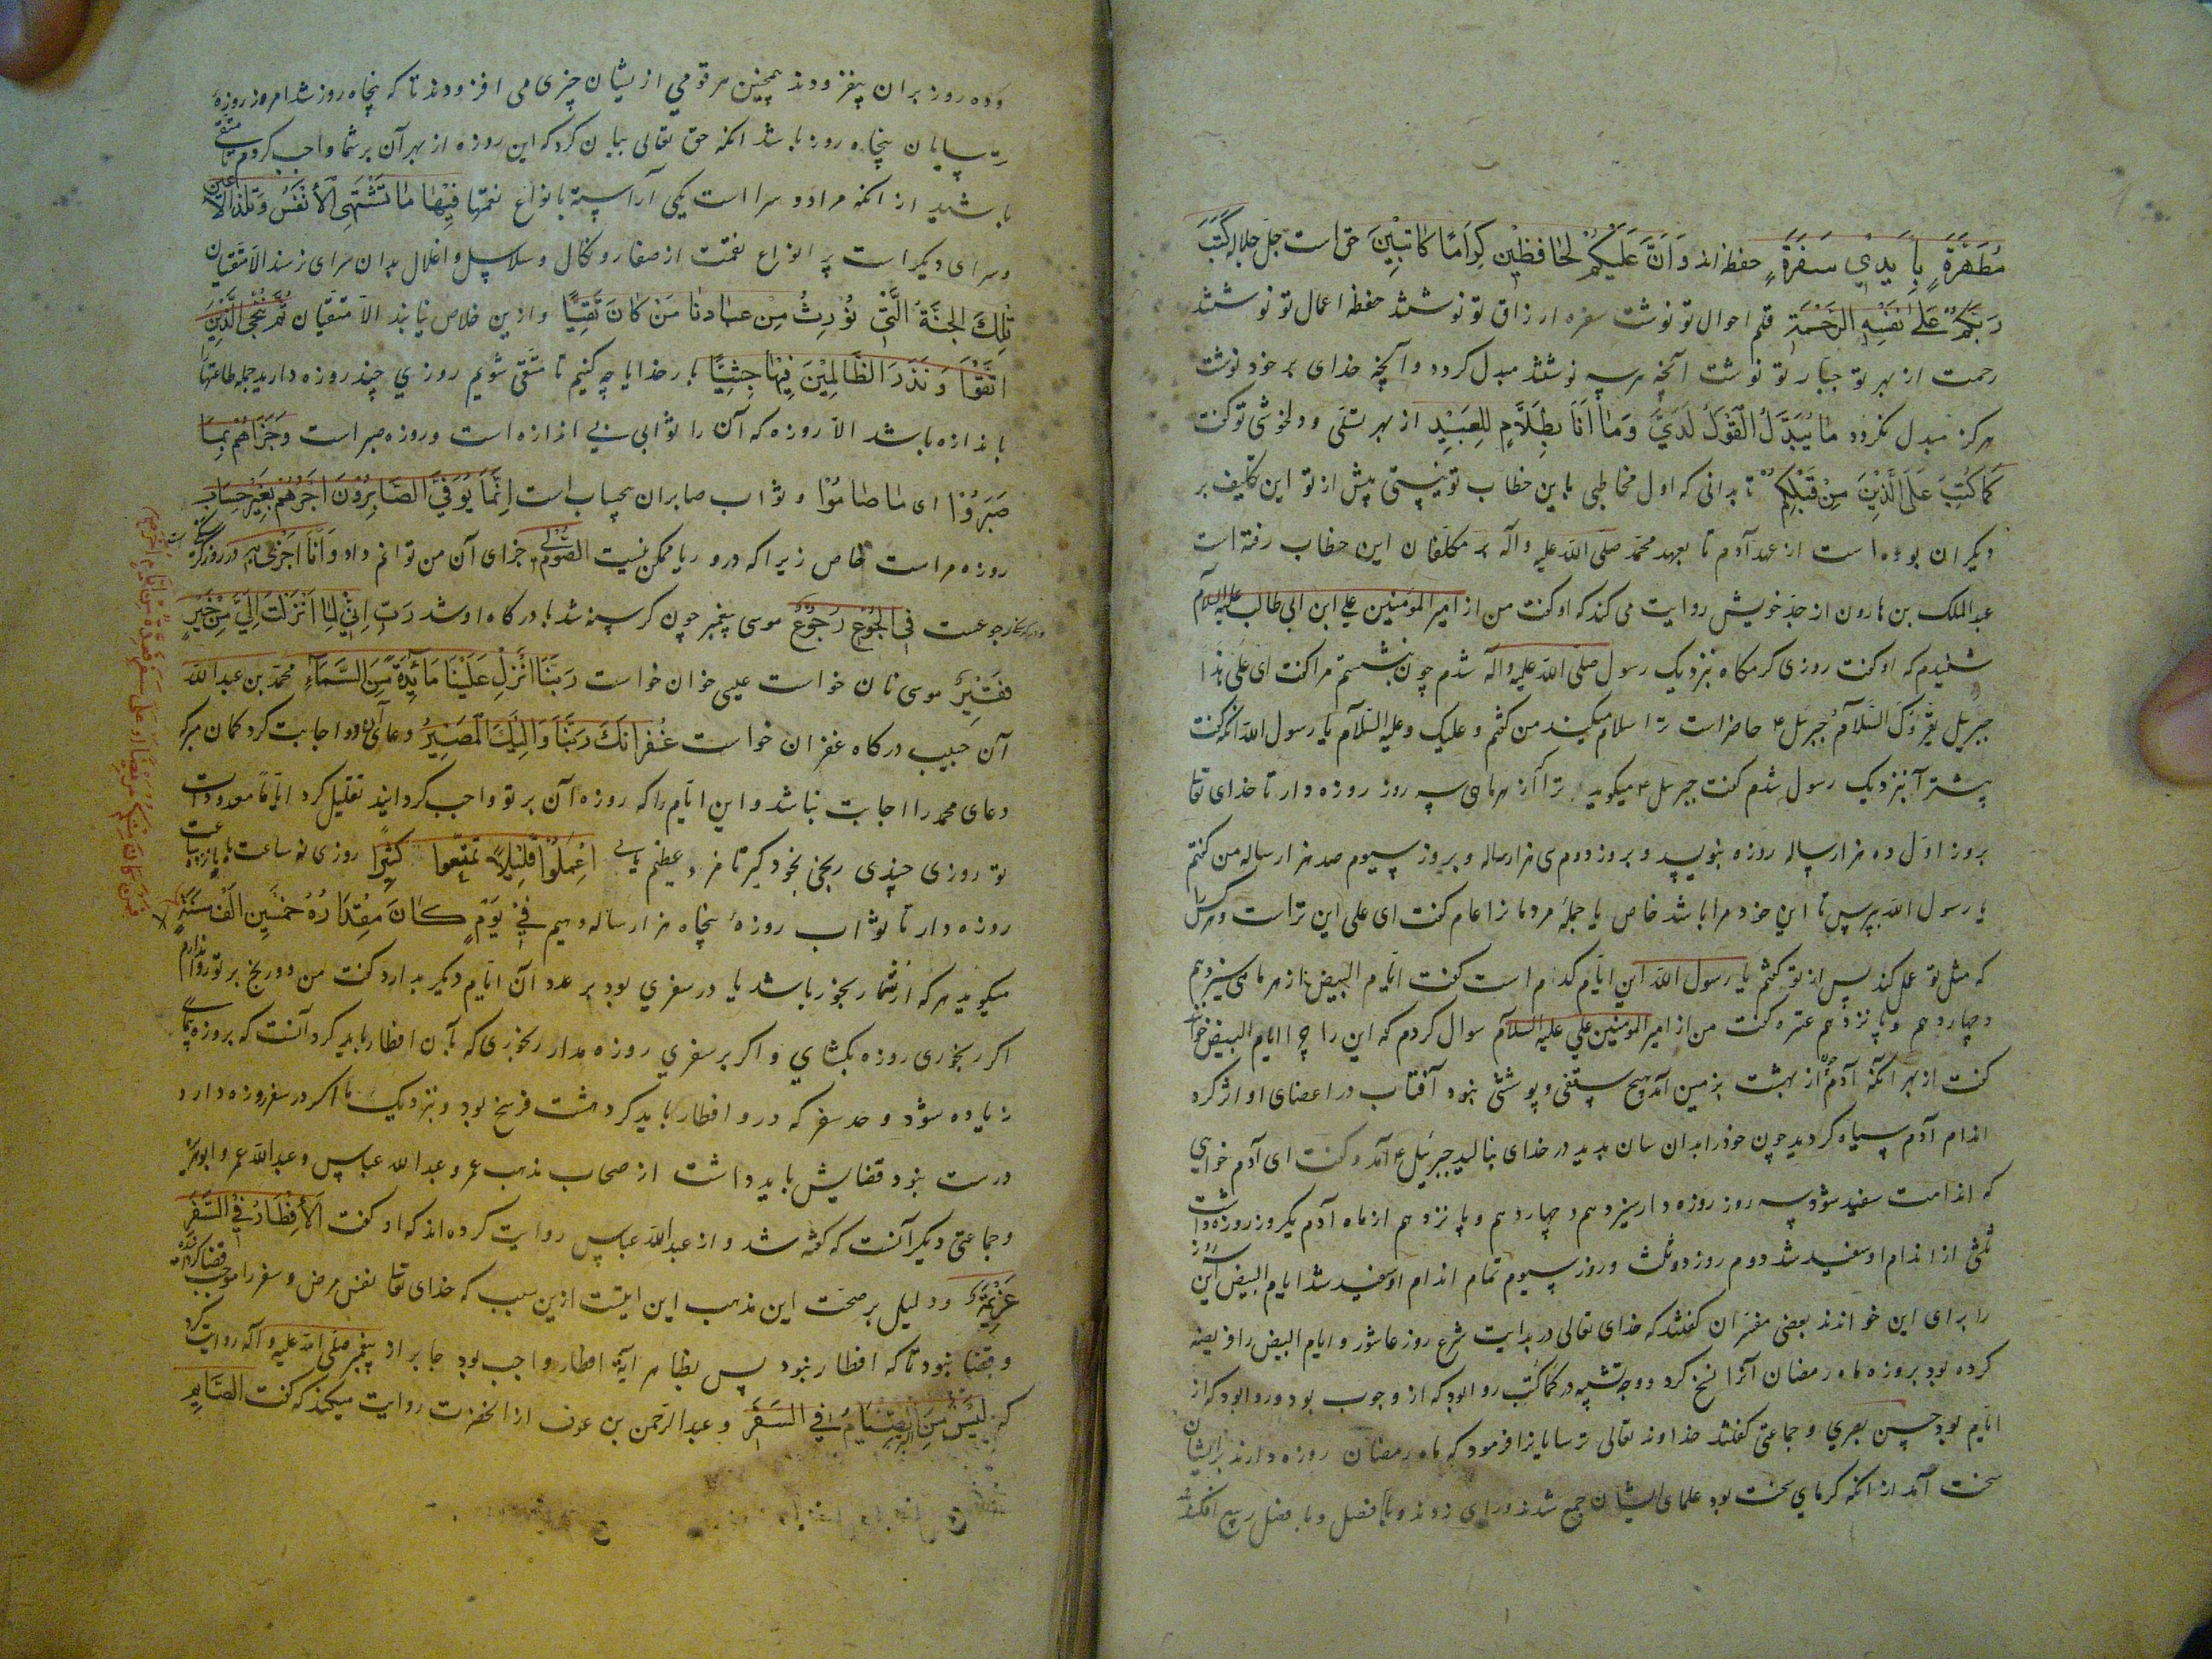 مُطَهَّرَةٍ بِاَيْدِيْ سَفَرَةٍ حفظه اند وَاَنَّ عَلَيْكُمْ لَحَافِظِيْنَ كِرَامًا كَاتِبِيْنَ حق است جل جلاله كَتَبَ
رَبُّكُمْ عَلَى نَفْسِهِ الرَّحْمَةَ قلم احوال تو نوشت سفره ارزاق تو نوشتند حفظه اعمال تو نوشتند
رحمت از بهر تو جبار تو نوشت آنچه هر سه نوشتند مبدل كردد وآنچه خداى بر خود نوشت
هركز مبدل نكردد مَا يُبَدَّلُ الْقَوْلُ لَدَيَّ وَمَا اَنَا بِظَلَّامٍ لِلْعَبِيْدِ از بهر تسلى ودلخوشى تو كفت
كَمَا كُتِبَ عَلَى الَّذِيْنَ مِنْ قَبْلِكُمْ تا بدانى كه اول مخاطبى باين خطاب تو نيستى پيش از تو اين تكليف بر
ديكران بوده است از عهد آدم تا بعهد محمد صلى الله عليه وآله بر مكلفان اين خطاب رفته است
عبد الملك بن هارون از جد خويش روايت مى كند كه او كفت من از امير المؤمنين على ابن ابى طالب عليه السلام
شنيدم كه او كفت روزى كرمكاه بنزديك رسول صلى الله عليه وآله شدم چون بنشستم مرا كفت اى على هذا
جبريل يقرؤك السلام جبريل ع حاضر است ترا سلام ميكند من كفتم وعليك وعليه السلام يا رسول الله آنكه كفت
پيشتر آ بنزديك رسول شدم كفت جبريل ع ميكويد ترا از هر ماهى سه روز روزه دار تا خداى تعا
بروز اول ده هزار ساله روزه بنويسد و بروز دوم سى هزار ساله و بروز سيوم صد هزار ساله من كفتم
يا رسول الله بپرس تا اين خود مرا باشد خاص يا جمله مردمانرا عام كفت اى على اين تراست وهركس
كه مثل تو عمل كند پس از تو كفتم يا رسول الله اين ايام كدام است كفت ايام البيض از هر ماهى سيزدهم
و چهاردهم و پانزدهم عتره كفت من از امير المومنين على عليه السلام سوال كردم كه اين را چرا ايام البيض خوانند
كفت از بهر آنكه آدم از بهشت بزمين آمد هيچ سقفى و پوششى نبود آفتاب در اعضاى او اثر كرد
اندام آدم سياه كرديد چون خودرا بدان سان بديد در خداى بناليد جبرئيل ع آمد و كفت اى آدم خواهي
كه اندامت سفيد شود سه روز روزه دار سيزدهم و چهاردهم و پانزدهم از ماه آدم يكروز روزه داشت
ثلثى از اندام او سفيد شد دوم روز دو ثلث و روز سيوم تمام اندام او سفيد شد ايام البيض اين روز
را براى اين خوانند بعضى مفسران كفتند كه خداى تعالى در بدايت شرع روز عاشور و ايام البيض را فريضه
كرده بود بروزه ماه رمضان آنرا نسخ كرد ووجه تشبيه در كما كتب روا بود كه از وجوب بود و روا بود كه از
ايام بود حسن بصري و جماعتى كفتند خداوند تعالى ترسايانرا فرمود كه ماه رمضان روزه دارند برايشان
سخت آمد از آنكه كرماي سخت بود علماى ايشان جمع شدند وراى زدند وبا فصل ربيع افكندند
وده روز بران بيفزودند همچنين هر قومي از يشان چيزى مى افزودند تا كه پنجاه روز شد امروز روزه
ترسايان پنجاه روز باشد آنكه حق تعالى بيان كرد كه اين روزه از بهر آن بر شما واجب كردم تا متقي
باشيد از آنكه مرا دو سرا است يكى آراسته بانواع نعمتها فِيْهَا مَا تَشْتَهِى الْاَنْفُسُ وَتَلَذُّ الْاَعْيُنُ
وسراى ديكر است پر انواع نقمت از صغار ونكال و سلاسل و اغلال بدان سراى نرسند الا متقيان
تِلْكَ الْجَنَّةُ الَّتِيْ نُوْرِثُ مِنْ عِبَادِنَا مَنْ كَانَ تَقِيًّا وازين خلاص نيابند الا متقيان ثُمَّ نُنَجِّي الَّذِيْنَ
اتَّقَوْا وَنَذَرُ الظَّالِمِيْنَ فِيْهَا جِثِيًّا بار خدايا چه كنيم تا متقى شويم روزي چند روزه داريد جمله طاعتها
باندازه باشد الا روزه كه آن را ثوابى بي اندازه است وروزه صبر است وَجَزَاهُمْ بِمَا
صَبَرُوْا اى بما صَامُوْا و ثواب صابران بيحساب است اِنَّمَا يُوَفَّى الصَّابِرُوْنَ اَجْرَهُمْ بِغَيْرِ حِسَابٍ
روزه مراست خاص زيرا كه درو ريا ممكن نيست الصَّوْمُ لِيْ جزاى آن من توانم داد وَاَنَا اَجْزِيْ بِهِ
فِى الْجُوْعِ رُجُوْعٌ موسى پيغمبر چون كرسنه شد با دركاه او شد رَبِّ اِنِّيْ لِمَا اَنْزَلْتَ اِلَيَّ مِنْ خَيْرٍ
فَقِيْرٌ موسى نان خواست عيسى خوان خواست رَبَّنَا اَنْزِلْ عَلَيْنَا مَائِدَةً مِنَ السَّمَاءِ محمد بن عبد الله
آن حبيب دركاه غفران خواست غُفْرَانَكَ رَبَّنَا وَاِلَيْكَ الْمَصِيْرُ دعاى آن هر دو اجابت كرد كمان مبر كه
دعاى محمد را اجابت نباشد واين ايام را كه روزه آن بر تو واجب كردانيد تقليل كرد اياما معدودات
تو روزى چندى رنجى بخود كير تا مزد عظيم يابى اِعْمَلُوْا قَلِيْلًا تَمَتَّعُوا كَثِيْرًا روزى نه ساعت يا پانزده ساعت
روزه دار تا ثواب روزهٔ پنجاه هزار ساله دهيم فِيْ يَوْمٍ كَانَ مِقْدَارُهُ خَمْسِيْنَ اَلْفَ سَنَةٍ
ميكويد هر كه از شما رنجور باشد يا در سفري بود بر عدد آن ايام ديكر بدارد كفت من دو رنج بر تو روا ندارم
اكر رنجورى روزه بكشاي و اكر بر سفري روزه مدار رنجورى كه بآن افطار بايد كرد آنست كه بروزه بيمارى
زياده شود و حد سفر كه درو افطار بايد كرد هشت فرسخ بود و بنزديك ما اكر در سفر روزه دارد
درست نبود قضايش بايد داشت از صحاب مذهب عمر و عبد الله عباس و عبد الله عمر و ابو هريره
و جماعتى ديكر آنست كه كفته شد و از عبد الله عباس روايت كرده اند كه او كفت اَلْاِفْطَارُ فِي السَّفَرِ
عَزِيْمَةٌ و دليل بر صحت اين مذهب اين ايتست ازين سبب كه خداى تعا نفس مرض و سفر را موجب قضا كرده
وقضا نبود تا كه افطار نبود پس بظاهر آية افطار واجب بود جابر از پيغمبر صلى الله عليه وآله روايت كرد
كه لَيْسَ مِنَ الْبِرِّ الصِّيَامُ فِي السَّفَرِ و عبد الرحمن بن عوف از آنحضرت روايت ميكند كه كفت الصَّايِمُ